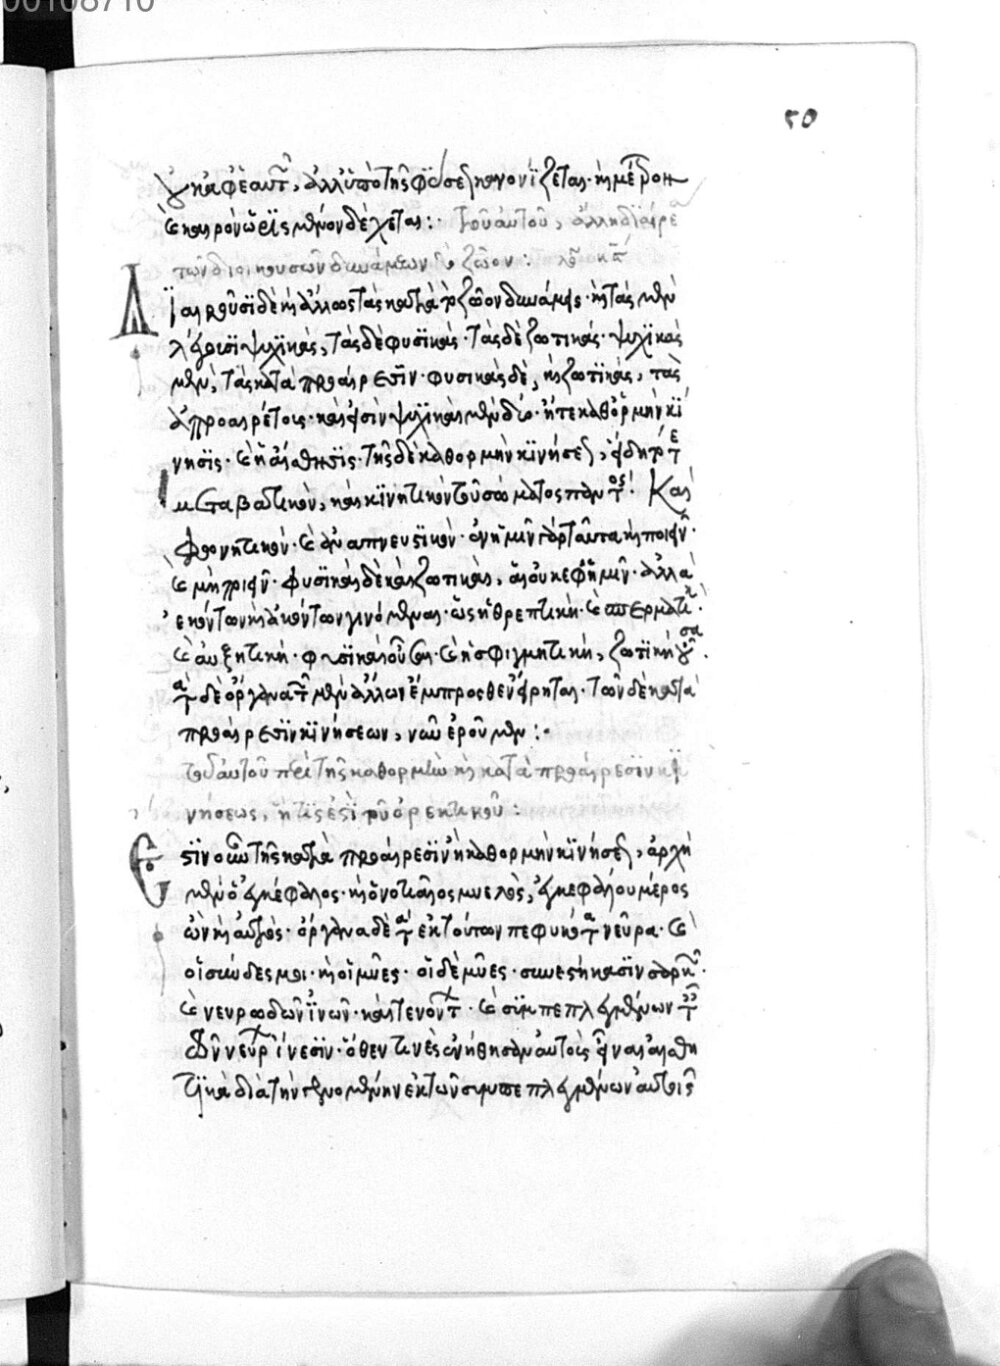 00108710
50
καὶ καιρὸν ὡρισμένον δέχεται: Τοῦ αὐτοῦ, ἄλλη διαίρε
τῶν διοικουσῶν δυνάμεων τὸ ζῶον:
Διαιροῦσι δὲ καὶ ἄλλως τὰς κατὰ τὸ ζῶον δυνάμεις· καὶ τὰς μὲν
λέγουσι ψυχικὰς, τὰς δὲ φυσικάς· τὰς δὲ ζωτικάς· ψυχικὰς
μὲν, τὰς κατὰ προαίρεσιν· φυσικὰς δὲ, καὶ ζωτικὰς, τὰς
ἀπροαιρέτους· καὶ εἰσὶν ψυχικαὶ μὲν δύο· ἥτε καθ' ὁρμὴν κί
νησις· καὶ ἡ αἴσθησις· τῆς δὲ καθορμὴν κινήσεως, εἴδη τό τε
μεταβατικὸν, καὶ κινητικὸν τοῦ σώματος παντός· Καὶ
φωνητικόν· καὶ ἀναπνευστικόν· ἐν ἡμῖν γὰρ ταῦτα καὶ ποιεῖν·
καὶ μὴ ποιεῖν· φυσικαὶ δὲ καὶ ζωτικαὶ, αἱ οὐκ ἐφ' ἡμῖν· ἀλλὰ
ἑκόντων καὶ ἀκόντων γινόμεναι· ὡς ἡ θρεπτική· καὶ σπερματική·
καὶ αὐξητική· φυσικαὶ οὖσαι· καὶ ἡ σφιγμητική, ζωτικὴ οὖσα.
τὰ δὲ ὄργανα τῶν μὲν ἄλλων ἔμπροσθεν εἴρηται· τῶν δὲ κατὰ
προαίρεσιν κινήσεων, νῦν ἐροῦμεν:
τοῦ αὐτοῦ περὶ τῆς καθορμὴν καὶ κατὰ προαίρεσιν κι
νήσεως, ἥτις ἐστὶ τοῦ ὀρεκτικοῦ:
Ἔστιν οὖν τῆς κατὰ προαίρεσιν ἢ καθορμὴν κινήσεως, ἀρχὴ
μὲν ὁ ἐγκέφαλος· καὶ ὁ νωτιαῖος μυελὸς, ἐγκεφάλου μέρος
ὢν καὶ αὐτὸς· ὄργανα δὲ τὰ ἐκ τούτων πεφυκότα νεῦρα· καὶ
οἱ σύνδεσμοι· καὶ οἱ μῦες· οἱ δὲ μῦες· συνεστήκασιν σαρκῶν·
καὶ νευρωδῶν ἰνῶν· καὶ τενόντων· καὶ συμπεπλεγμένων
ὅθεν τινὲς ἐνόησαν αὐτοὺς εἶναι αἰσθη
τικὰ διὰ τὴν γενομένην ἐκ τῶν συμπεπλεγμένων αὐτοῖς